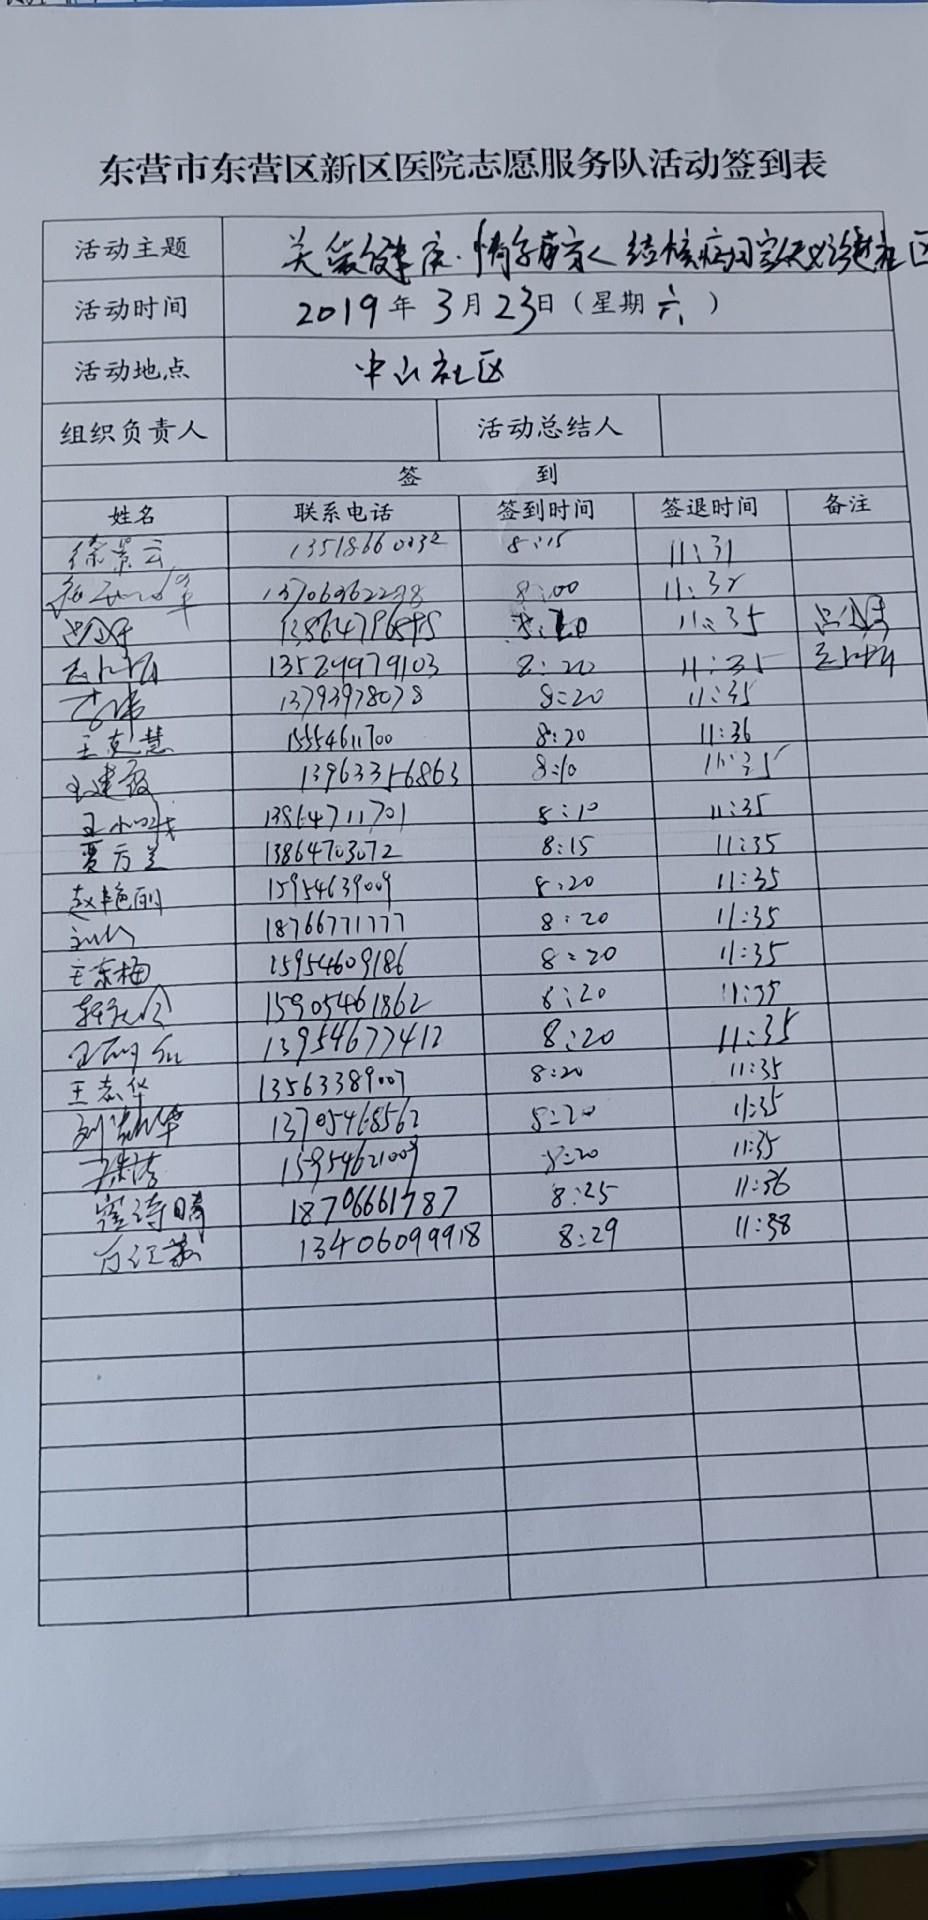 东营市东营区新区医院志愿服务队活动签到表
活动主题 关爱健康·情系
活动时间 2019年3月23日（星期六）
活动地点 中山社区
组织负责人 活动总结人
签 到
姓名 联系电话 签到时间 签退时间 备注
徐景云 8:15 11:31
8:00 11:32
11:35
13529979103 8:20 11:35
李伟 13793978078 8:20 11:35
王克慧 15554611700 8:20 11:36
王建毅 13963356863 8:10 11:35
13864711701 8:10 11:35
贾方兰 13864703072 8:15 11:35
赵艳丽 15954639009 8:20 11:35
18766771777 8:20 11:35
王东梅 15954609186 8:20 11:35
15905461862 8:20 11:35
13954677412 8:20 11:35
王志华 13563389007 8:20 11:35
13705468562 8:20 11:35
15954621009 8:20 11:35
18706661787 8:25 11:36
13406099918 8:29 11:38